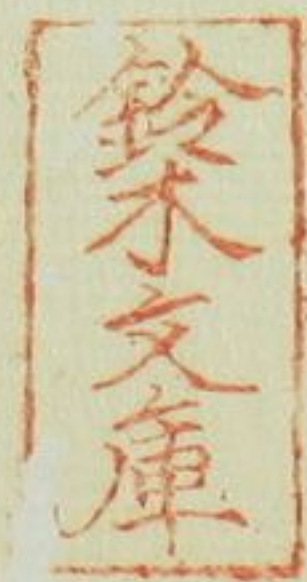 鈴木文庫